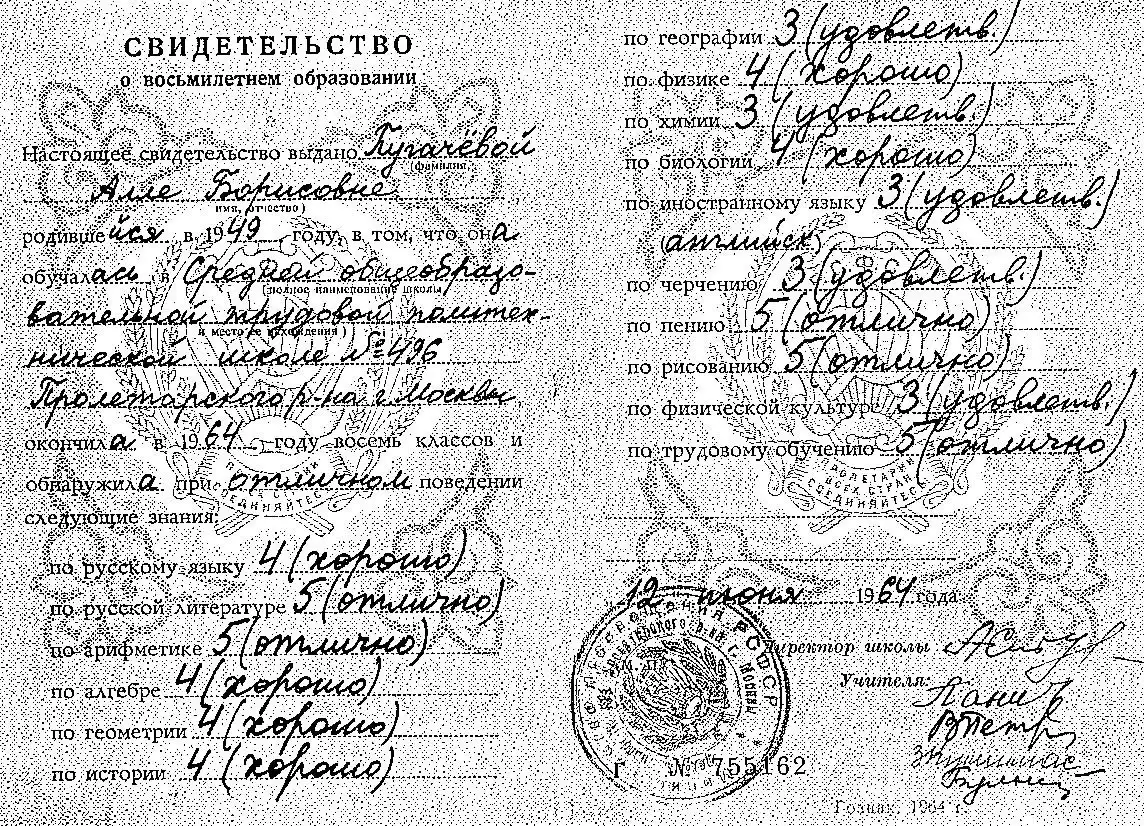 СВИДЕТЕЛЬСТВО
о восьмилетнем образовании
Настоящее свидетельство выдано Пугачёвой
(фамилия,
Алле Борисовне
имя, отчество)
родившейся в 1949 году, в том, что она
обучалась в Средней общеобразо-
(полное наименование школы
вательной трудовой политех-
и место ее нахождения)
нической школе № 496
Пролетарского р-на г. Москвы
окончила в 1964 году восемь классов и
обнаружила при отличном поведении
следующие знания:
по русскому языку 4 (хорошо)
по русской литературе 5 (отлично)
по арифметике 5 (отлично)
по алгебре 4 (хорошо)
по геометрии 4 (хорошо)
по истории 4 (хорошо)
по географии 3 (удовлетв.)
по физике 4 (хорошо)
по химии 3 (удовлетв.)
по биологии 4 (хорошо)
по иностранному языку 3 (удовлетв.)
(английск)
по черчению 3 (удовлетв.)
по пению 5 (отлично)
по рисованию 5 (отлично)
по физической культуре 3 (удовлетв.)
по трудовому обучению 5 (отлично)
ПРОЛЕТАРИИ
ВСЕХ СТРАН
СОЕДИНЯЙТЕСЬ
12 июня 1964 года
Директор школы
Учителя:
РСФСР
Г № 755162
Гознак. 1964 г.